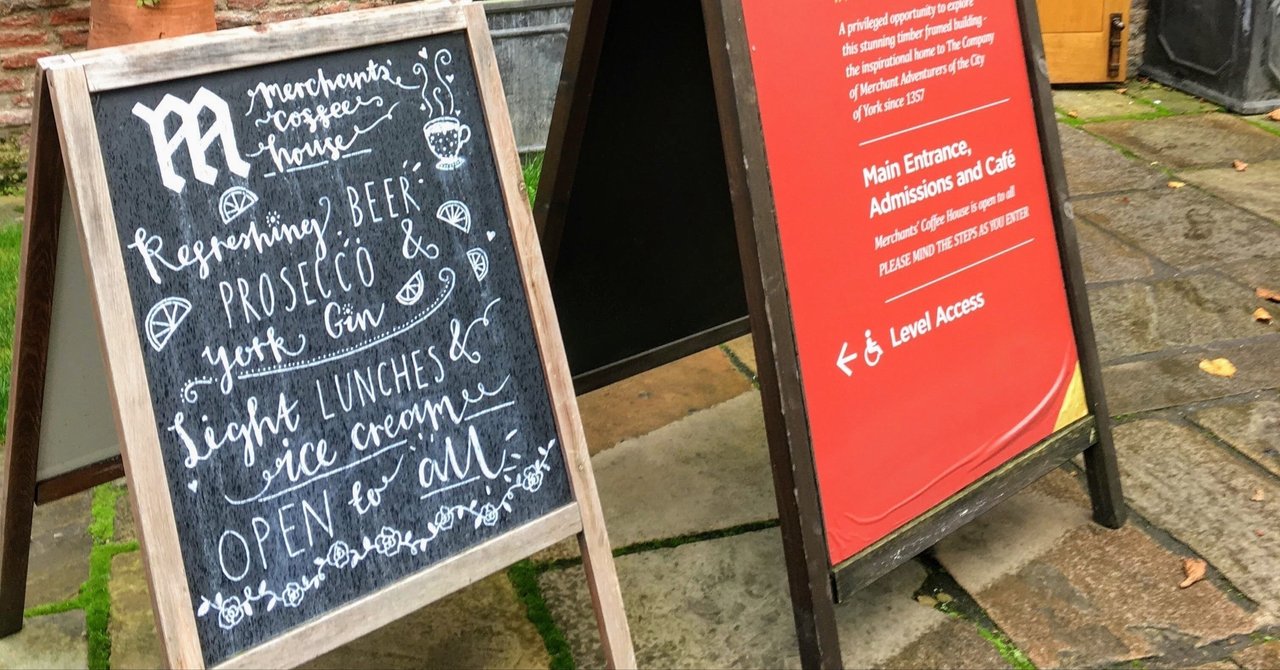 M
Merchants'
coffee
house
Refreshing BEER
PROSECCO &
York Gin
Light LUNCHES &
ice cream
OPEN to all
A privileged opportunity to explore
this stunning timber framed building -
the inspirational home to The Company
of Merchant Adventurers of the City
of York since 1357
Main Entrance,
Admissions and Café
Merchants' Coffee House is open to all
PLEASE MIND THE STEPS AS YOU ENTER
Level Access